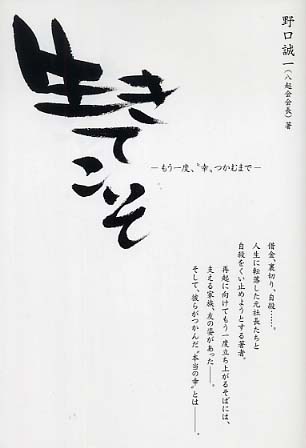 野口誠一(八起会会長)著
生きてこそ
―もう一度、〝幸〟つかむまで―
借金、裏切り、自殺……。
人生に転落した元社長たちと
自殺をくい止めようとする著者。
再起に向けてもう一度立ち上がるそばには、
支える家族、友の姿があった――。
そして、彼らがつかんだ〝本当の幸〟とは――。